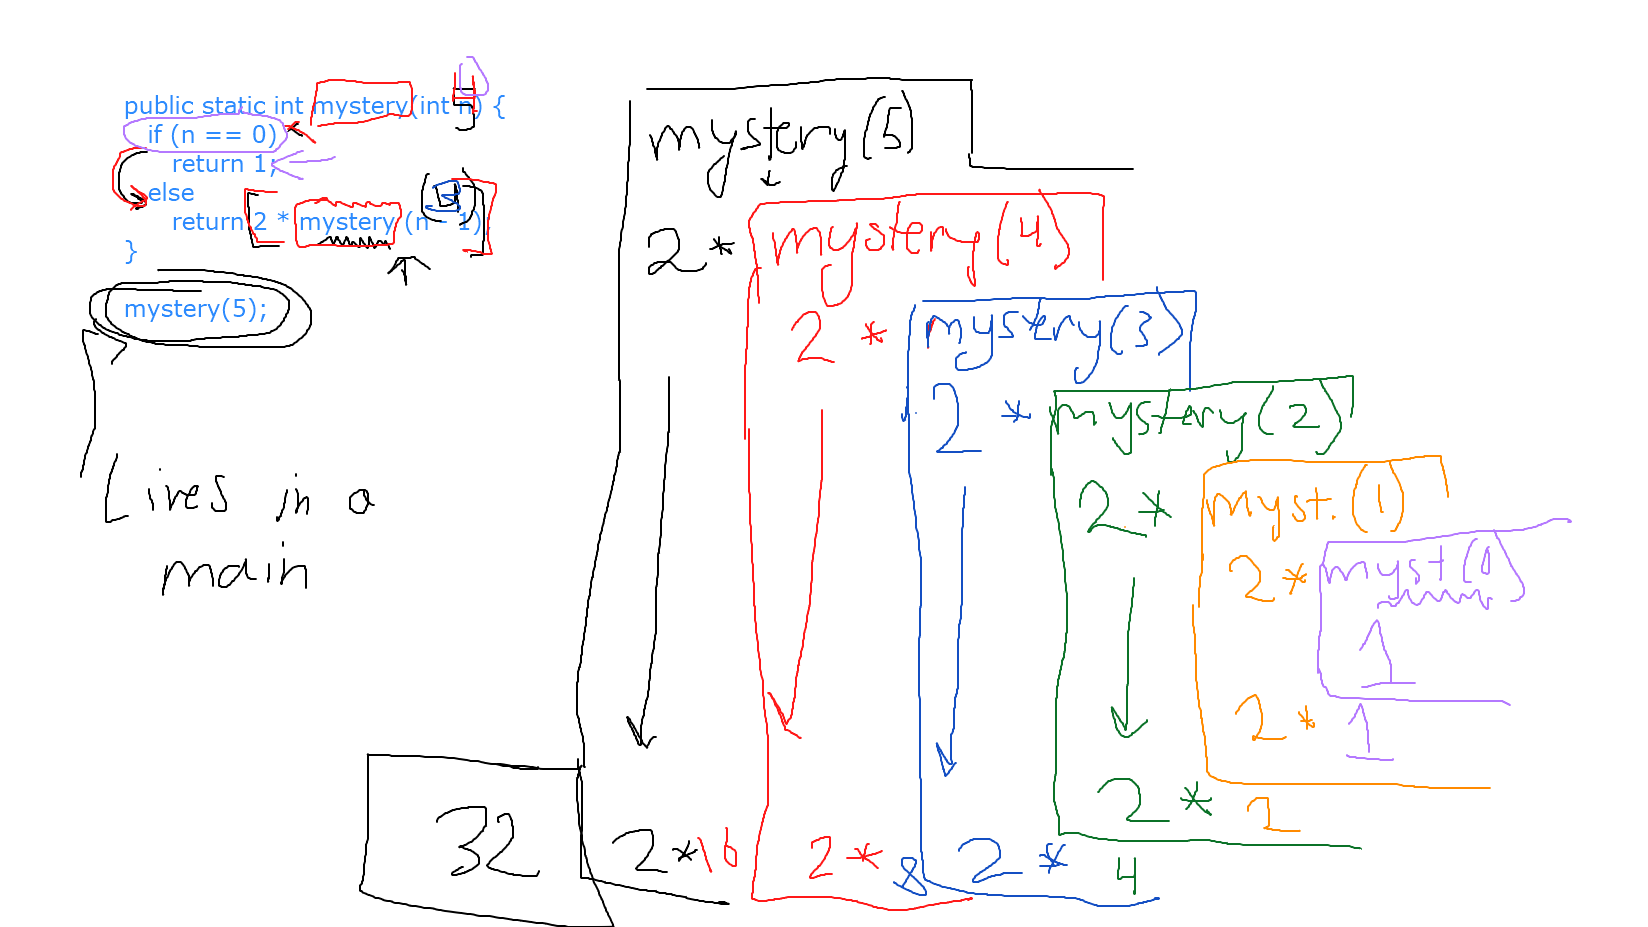 public static int mystery(int n) {
if (n == 0)
return 1;
else
return 2 * mystery (n - 1)
}
mystery(5);
Lives in a
main
mystery(5)
2 * mystery(4)
2 * mystery(3)
2 * mystery(2)
2 * myst.(1)
2 * myst(0)
1
2 * 1
2 * 2
2 * 4
2 * 8
2 * 16
32